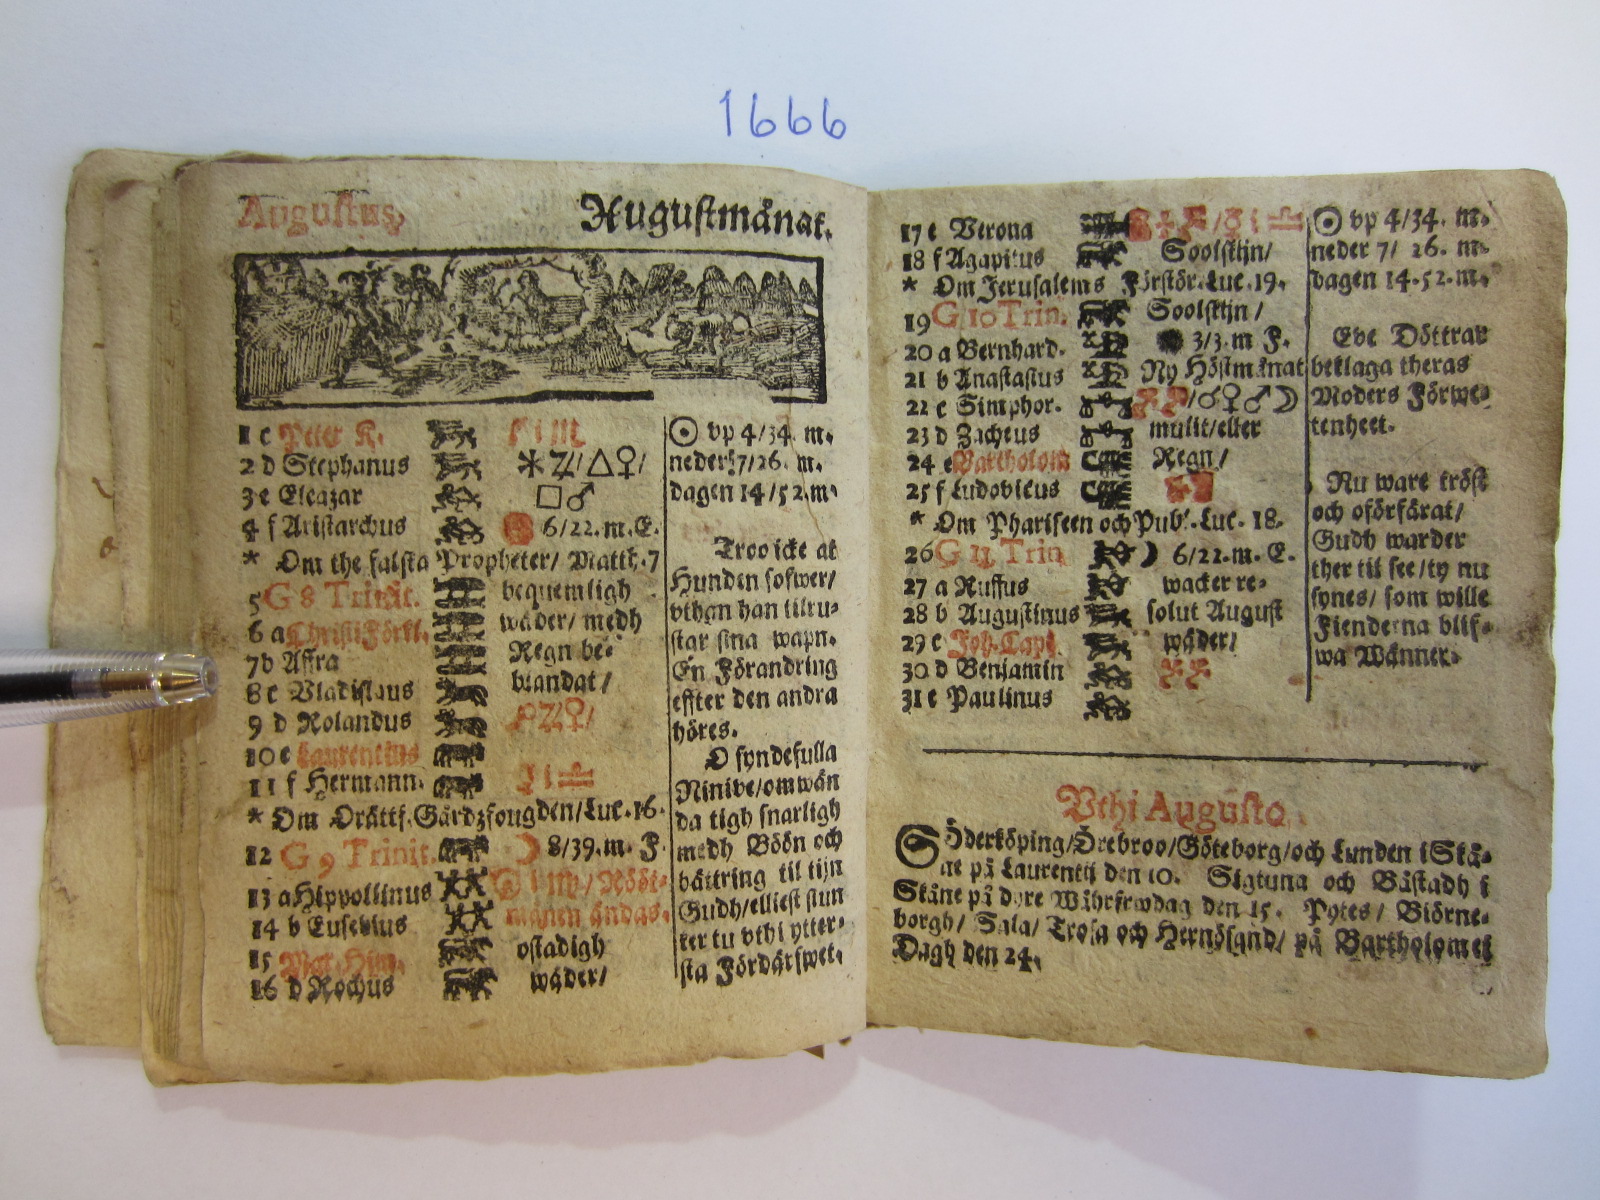 1666
Augustus, Augustmånat.
1 c Peter K.
2 d Stephanus ⚹ ♃/△♀/
3 e Eleazar □♂
4 f Aristarchus 6/22. m. E.
* Om the falska Propheter/ Matth. 7
5 G 8 Trinit. bequemligh
6 a Christi Förkl. wäder/ medh
7 b Affra Regn be-
8 c Vladislaus blandat/
9 d Rolandus ♃♀/
10 e Laurentius
11 f Hermann. i ♎
* Om Orättf. Gårdzfougden/ Luc. 16.
12 G 9 Trinit. ☽ 8/39. m. F.
13 a Hippollinus Rööt-
14 b Eusebius månan ändas.
15 ostadigh
16 d Rochus wäder/
☉ vp 4/34. m.
neder 7/26. m.
dagen 14/52. m.
Troo icke at
Hunden sofwer/
vthan han tilru-
star sina wapn.
En Förandring
effter den andra
höres.
O syndefulla
Ninive/ om wän
da tigh snarligh
medh Böön och
bättring til tijn
Gudh/ elliest stun
der tu vthi ytter-
sta Fördärfwet.
17 e Verona
18 f Agapitus Soolskijn/
* Om Jerusalems Förstör. Luc. 19.
19 G 10 Trin. Soolskijn/
20 a Bernhard. ● 3/3. m F.
21 b Anastasius Ny Höstmånat
22 c Simphor. /♂♀♂☽
23 d Zacheus mulit/ eller
24 e Bartholom Regn/
25 f Ludovicus
* Om Phariseen och Publ. Luc. 18.
26 G 11 Trin ☽ 6/22. m. E.
27 a Ruffus wacker re-
28 b Augustinus solut August
29 c Joh. Capi. wäder/
30 d Benjamin
31 e Paulinus
☉ vp 4/34. m.
neder 7/ 26. m.
dagen 14. 52. m.
Eve Döttrar
beklaga theras
Moders Förwe-
tenheet.
Nu ware tröst
och oförfärat/
Gudh warder
ther til see/ ty nu
synes/ som wille
Fienderna blif-
wa Wänner.
Vthi Augusto.
Söderköping/ Örebroo/ Göteborg/ och Lunden i Skå-
ne på Laurentij den 10. Sigtuna och Båstadh i
Skåne på dyre Wåhrfrwdag den 15. Pytes/ Biörne-
borgh/ Sala/ Trosa och Hernösand/ på Bartholomei
Dagh den 24.